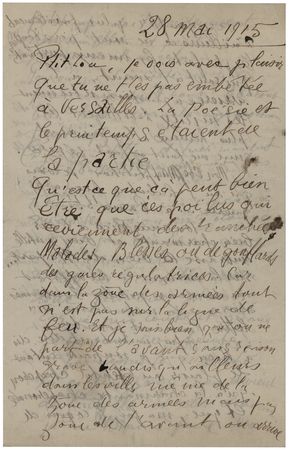 28 mai 1915
Ptit Lou, je vois avec plaisir
que tu ne t'es pas embêtée
à Versailles. La Poésie et
le printemps étaient de
la partie
Qu'est ce que ça peut bien
Être que ces poilus qui
reviennent des tranchées
Malades, Blessés, ou de
de gares régulatrices. Car
dans la zone des armées tout
n'est pas sur la ligne de
feu. Et je sais bien qu'on ne
part de l'avant sans raison
grave, tandis qu'ailleurs
dans les villes même de la
Zone des armées mais pas
Zone de l'avant on arrive